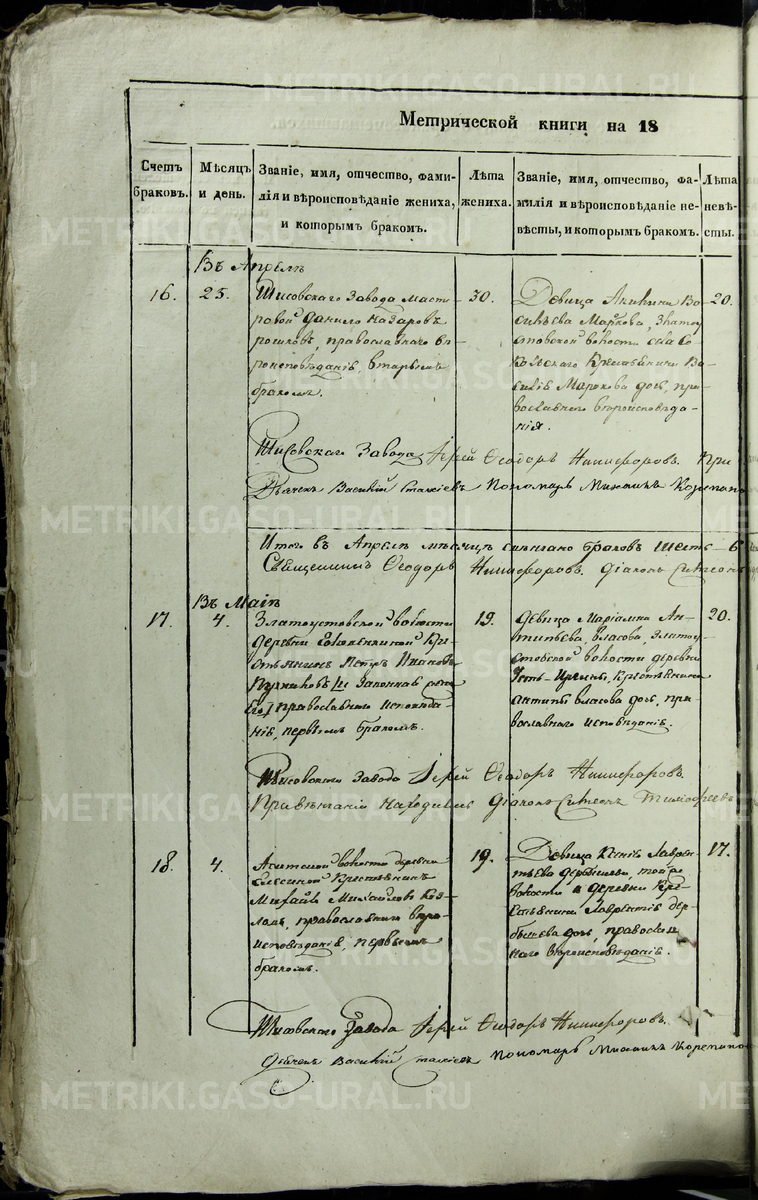 Метрической книги на 18
Счетъ браковъ.
Мѣсяцъ и день.
Званіе, имя, отчество, фами-
лія и вѣроисповѣданіе жениха,
и которымъ бракомъ.
Лѣта жениха.
Званіе, имя, отчество, фа-
милія и вѣроисповѣданіе не-
вѣсты, и которымъ бракомъ.
Лѣта невѣ-
сты.
Въ Апрелѣ
16.
25.
Шисовскаго Завода Масте-
ровой Данило Назаровъ
православнаго вѣ-
роисповѣданія, вторымъ
бракомъ.
30.
Девица Акилина Ва-
сильева Маркова, Злато-
устовской волости села Со-
кольскаго Крестьянина Ва-
силія Маркова дочь, пра-
вославнаго вѣроисповѣда-
нія.
20.
Шисовскаго Завода Іерей Ѳеодоръ Никифоровъ. При
Дьячекъ Василій Пономарь Михаилъ
Итого въ Апрелѣ мѣсяцѣ вѣнчано браковъ шесть — 6
Священникъ Ѳеодоръ Никифоровъ. Діаконъ Симеонъ
Въ Маіѣ
17.
4.
Златоустовской волости
деревни Кре-
стьянинъ Петръ Ивановъ
православнаго исповѣда-
нія, первымъ бракомъ.
19.
Девица Маріамна Ан-
типьева Власова, Злато-
устовской волости деревни
Усть- Крестьянина
Антипы Власова дочь, пра-
вославнаго исповѣданія.
20.
Шисовскаго Завода Іерей Ѳеодоръ Никифоровъ.
При вѣнчаніи находился Діаконъ Симеонъ Тимофеевъ
18.
4.
Ачитской волости деревни
Крестьянинъ
Михайло Михайловъ Коз-
ловъ, православнаго вѣро-
исповѣданія, первымъ
бракомъ.
19.
Девица Ксенія Лаврен-
тьева Дербышева, той же
волости и деревни Кре-
стьянина Лаврентія Дер-
бышева дочь, православ-
наго вѣроисповѣданія.
17.
Шисовскаго Завода Іерей Ѳеодоръ Никифоровъ.
Дьячекъ Василій Пономарь Михаилъ
METRIKI.GASO-URAL.RU